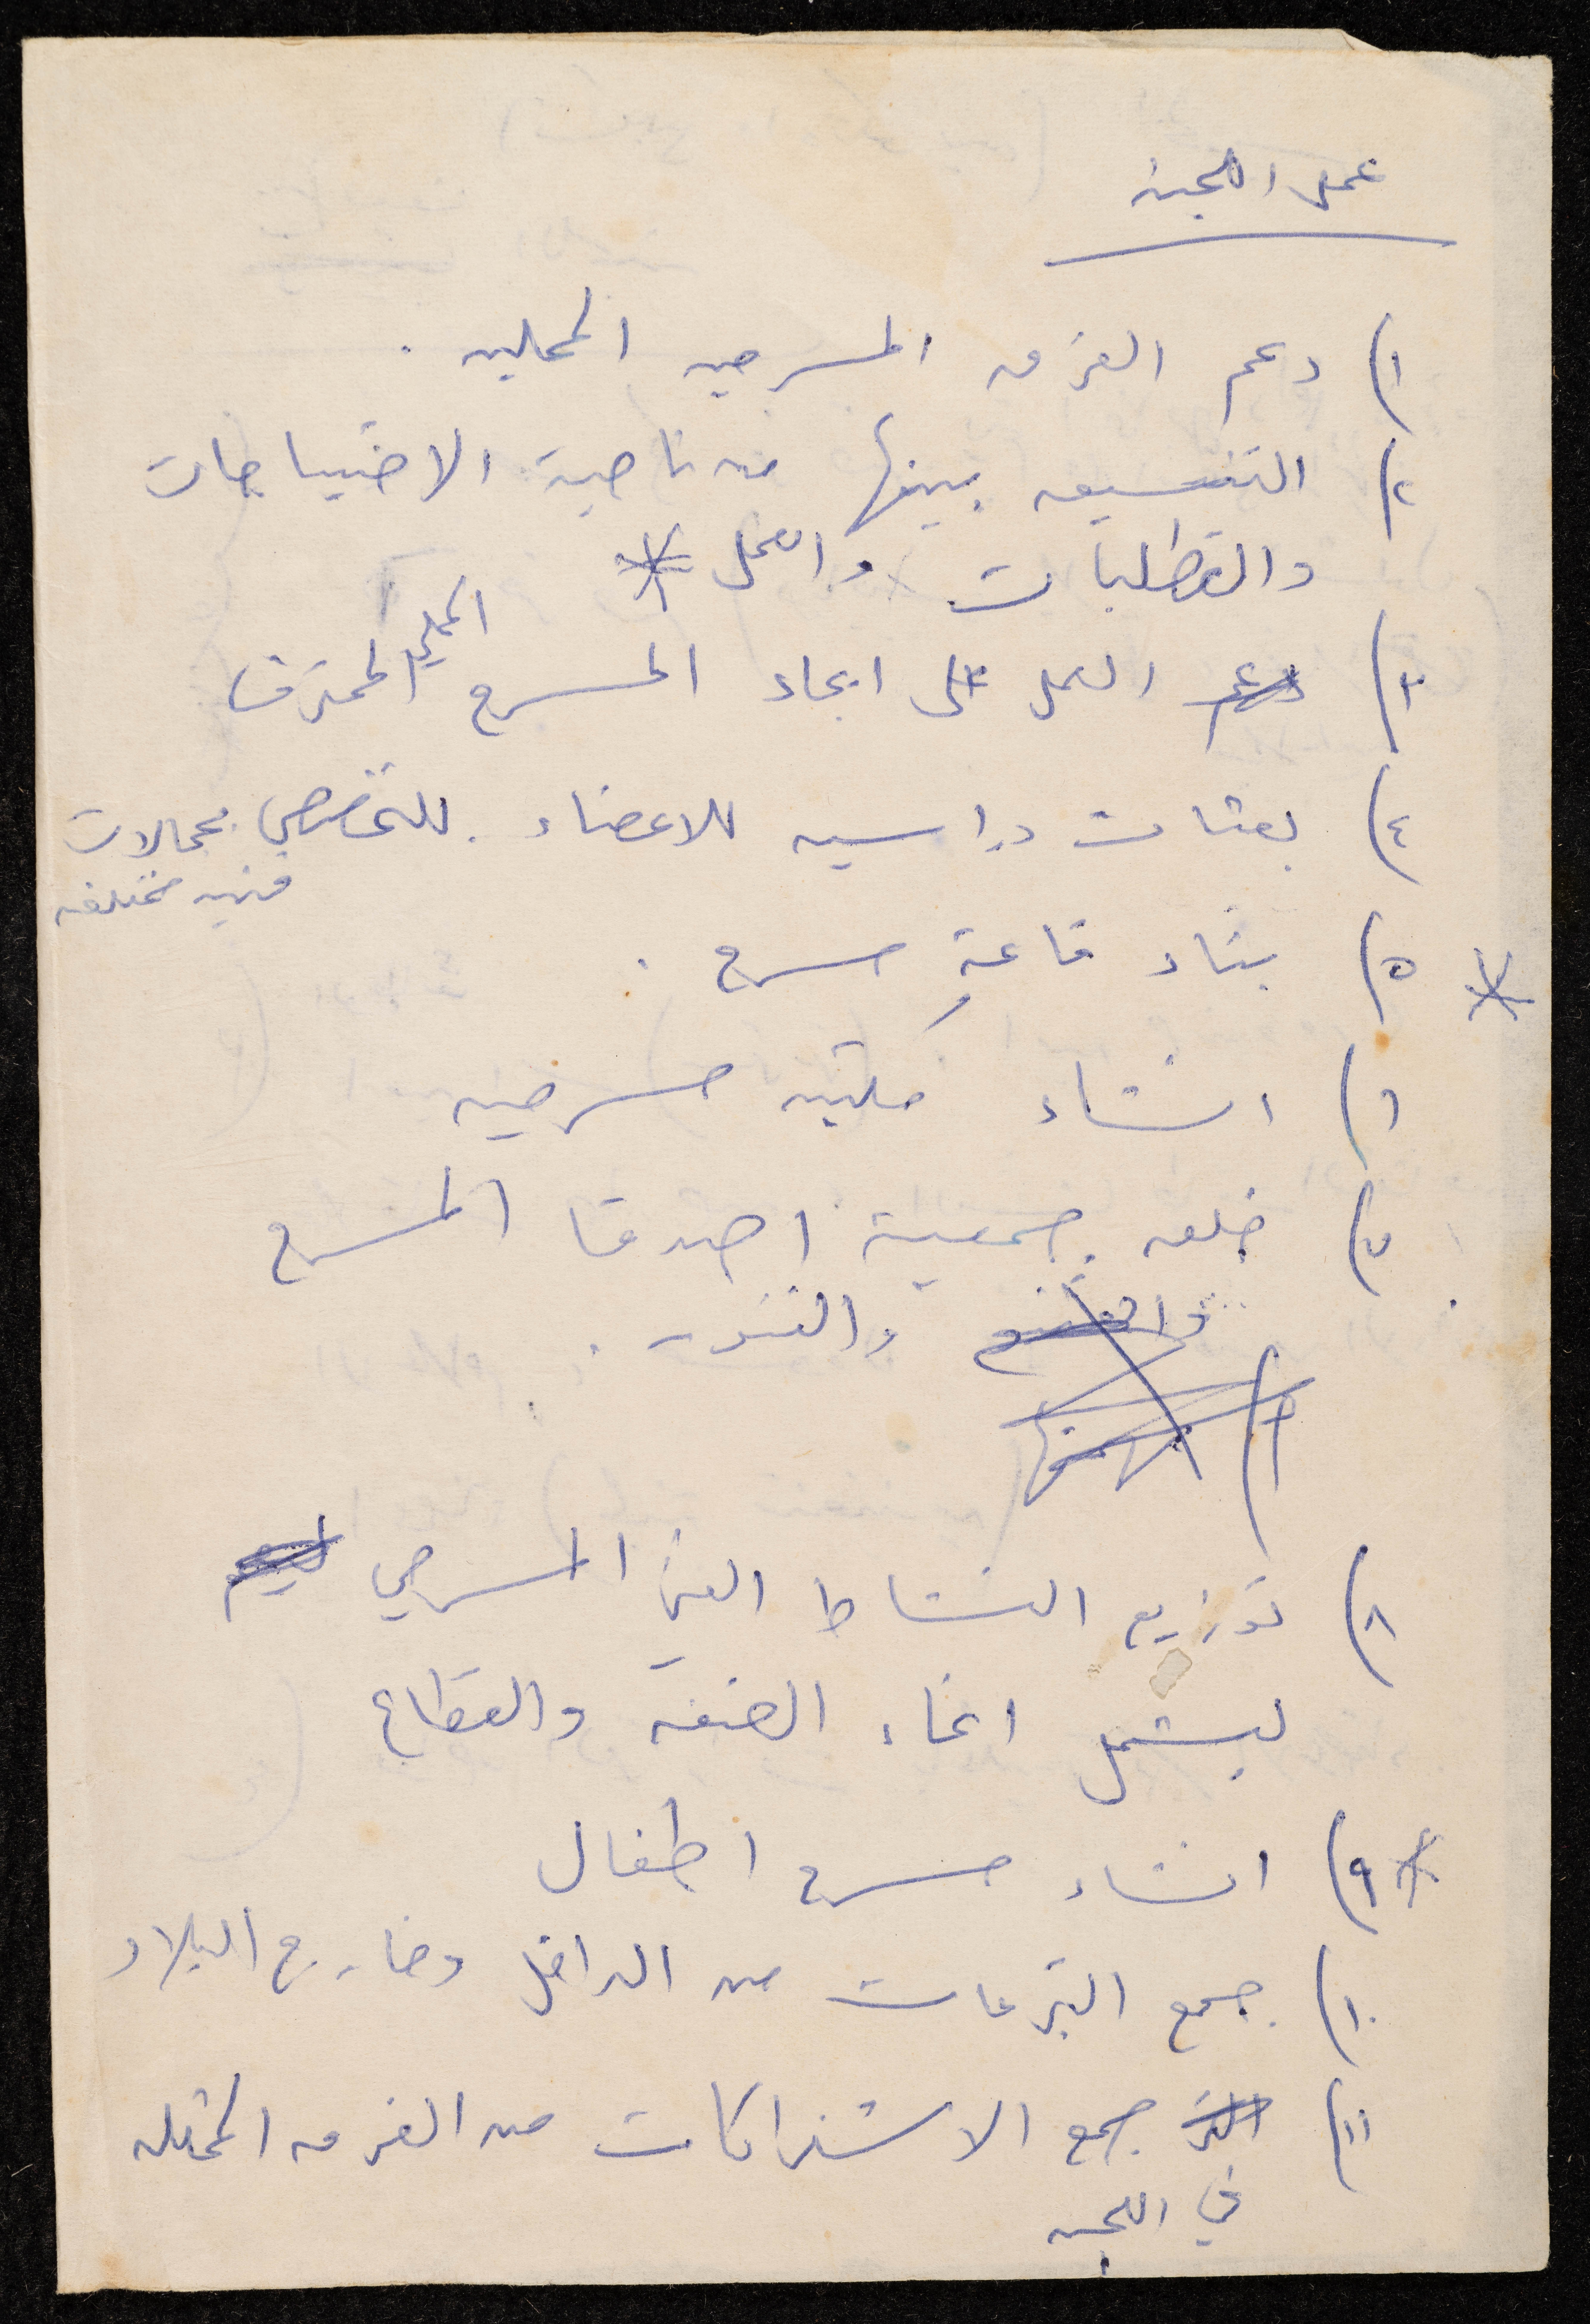 عمل اللجنه
١) دعم الفرق المسرحيه المحليه .
٢) التنسيق بينها من ناحية الاحتياجات
والمتطلبات والعمل *
٣) العمل على ايجاد المسرح المحلي المحترف
٤) بعثات دراسيه للاعضاء . للتخصص بمجالات
فنيه مختلفه
* ٥) بناء قاعة مسرح .
٦) انشاء مكتبه مسرحيه
٧) خلق جمعية اصدقا المسرح
والفنون .
٨) توزيع النشاط الفني المسرحي
ليشمل انحاء الضفة والقطاع
* ٩) انشاء مسرح اطفال
١٠) جمع التبرعات من الداخل وخارج البلاد
١١) جمع الاشتراكات من الفرق الممثله
في اللجنه